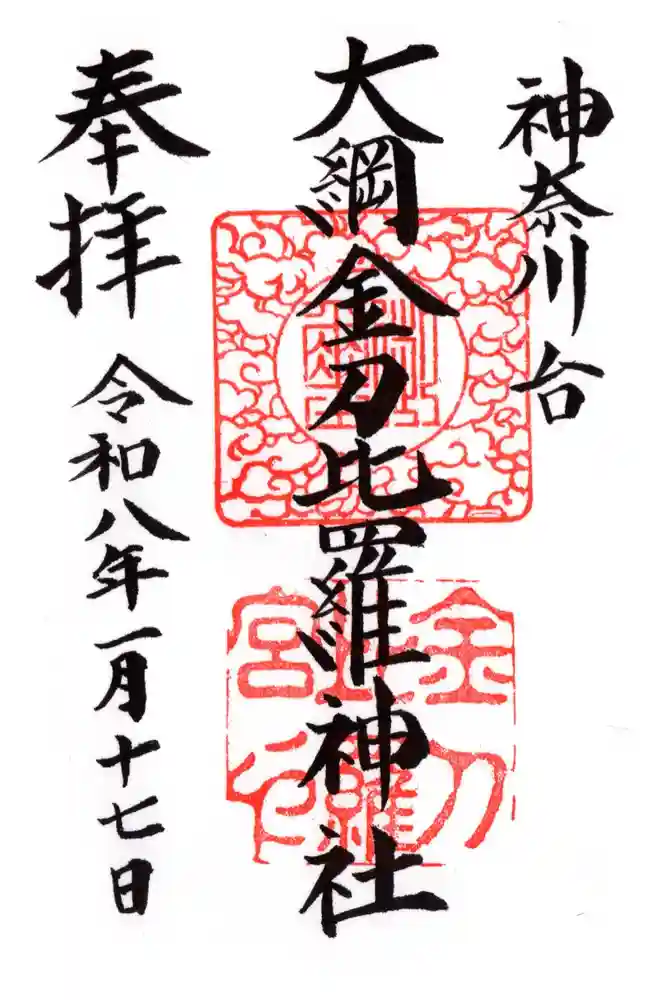 神奈川台
大綱金刀比羅神社
奉拝
令和八年一月十七日